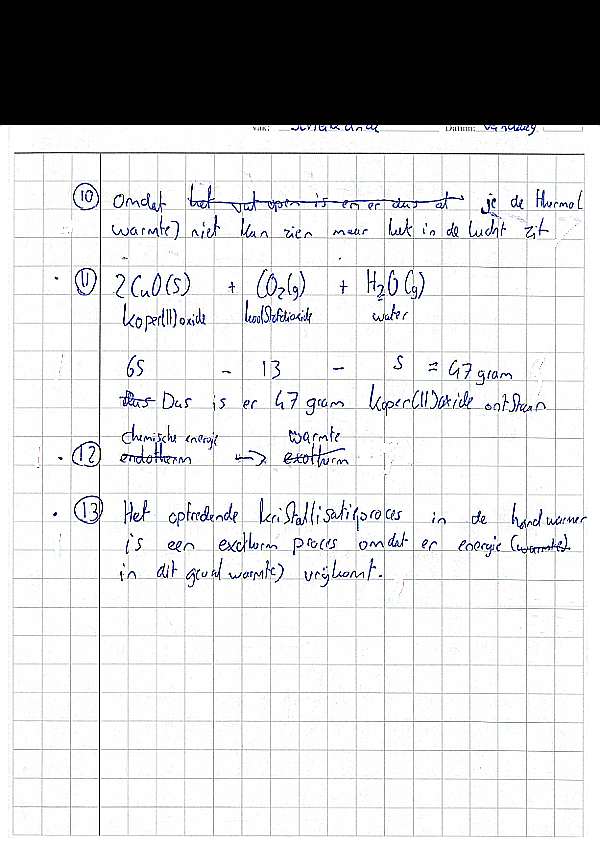 vak: scheikunde Datum: vandaag
10 Omdat het vat open is en er dus al je de thermo(
warmte) niet kan zien maar het in de lucht zit
11 2CuO(s) + CO2(g) + H2O(g)
koper(II)oxide koolstofdioxide water
65 - 13 - 5 = 47 gram
dus Dus is er 47 gram koper(II)oxide ontstaan
chemische energie warmte
12 endotherm -> exotherm
13 Het optredende kristallisatieproces in de handwarmer
is een exotherm proces omdat er energie (warmte)
in dit geval warmte) vrijkomt.